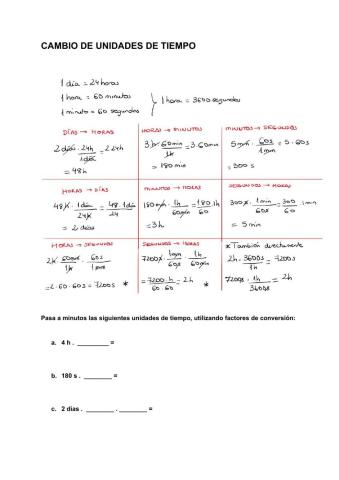 CAMBIO DE UNIDADES DE TIEMPO
1 día = 24 horas
1 hora = 60 minutos
1 minuto = 60 segundos
1 hora = 3600 segundos
DÍAS → HORAS
2 días · 24h / 1 día = 2·24h
= 48h
HORAS → MINUTOS
3h · 60min / 1h = 3·60min
= 180 min
MINUTOS → SEGUNDOS
5 min · 60s / 1 min = 5·60s
= 300 s
HORAS → DÍAS
48h · 1 día / 24h = 48·1 día / 24
= 2 días
MINUTOS → HORAS
180 min · 1h / 60min = 180·1h / 60
= 3h
300s · 1min / 60s = 300 / 60 · 1min
= 5 min
HORAS → SEGUNDOS
2h · 60min / 1h · 60s / 1min
= 2·60·60s = 7200s *
SEGUNDOS → HORAS
7200s · 1min / 60s · 1h / 60min
= 7200·h / 60·60 = 2h *
* También directamente
2h · 3600s / 1h = 7200s
7200s · 1h / 3600s = 2h
Pasa a minutos las siguientes unidades de tiempo, utilizando factores de conversión:
a. 4 h . ________ =
b. 180 s . ________ =
c. 2 días . ________ . ________ =